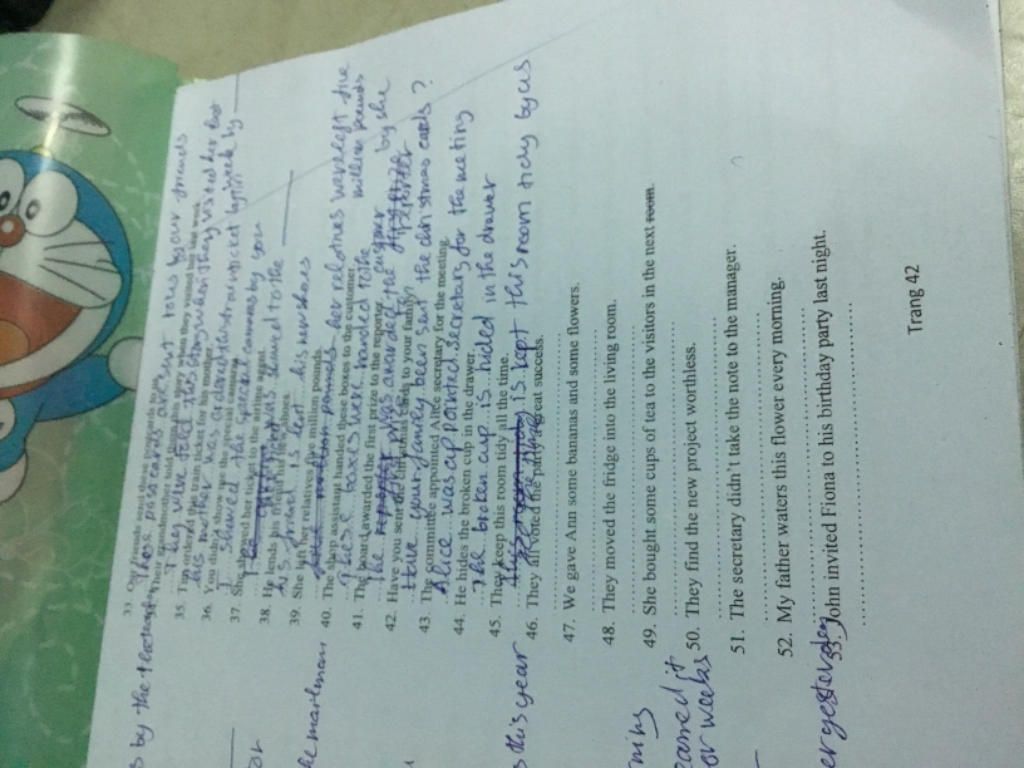 33. Our friends send these postcards to us.
These postcards are sent to us by our friends
34. Their grandmother told them this story when they visited her last week.
They were told this story when they visited her last week by
35. Tim ordered the train ticket for his mother.
his mother has ordered this train ticket by Tim
36. You didn't show me the special cameras.
I showed the special cameras by you
37. She showed her ticket to the airline agent.
ticket was showed to the
38. He lends his friend his new shoes.
his friend is lent his new shoes
39. She left her relatives five million pounds.
her relatives were left five million pounds
40. The shop assistant handed these boxes to the customer.
These boxes were handed to the
41. The board awarded the first prize to the reporter.
The reporter was awarded the
42. Have you sent the christmas cards to your family?
Have your family been sent the christmas cards ?
43. The committee appointed Alice secretary for the meeting.
Alice was appointed secretary for the meeting
44. He hides the broken cup in the drawer.
The broken cup is hided in the drawer
45. They keep this room tidy all the time.
is kept this room tidy by us
46. They all voted the party a great success.
47. We gave Ann some bananas and some flowers.
48. They moved the fridge into the living room.
49. She bought some cups of tea to the visitors in the next room.
50. They find the new project worthless.
51. The secretary didn't take the note to the manager.
52. My father waters this flower every morning.
53. John invited Fiona to his birthday party last night.
Trang 42
s by the
he mailman
s this year
ning
or weeks
er yesterday